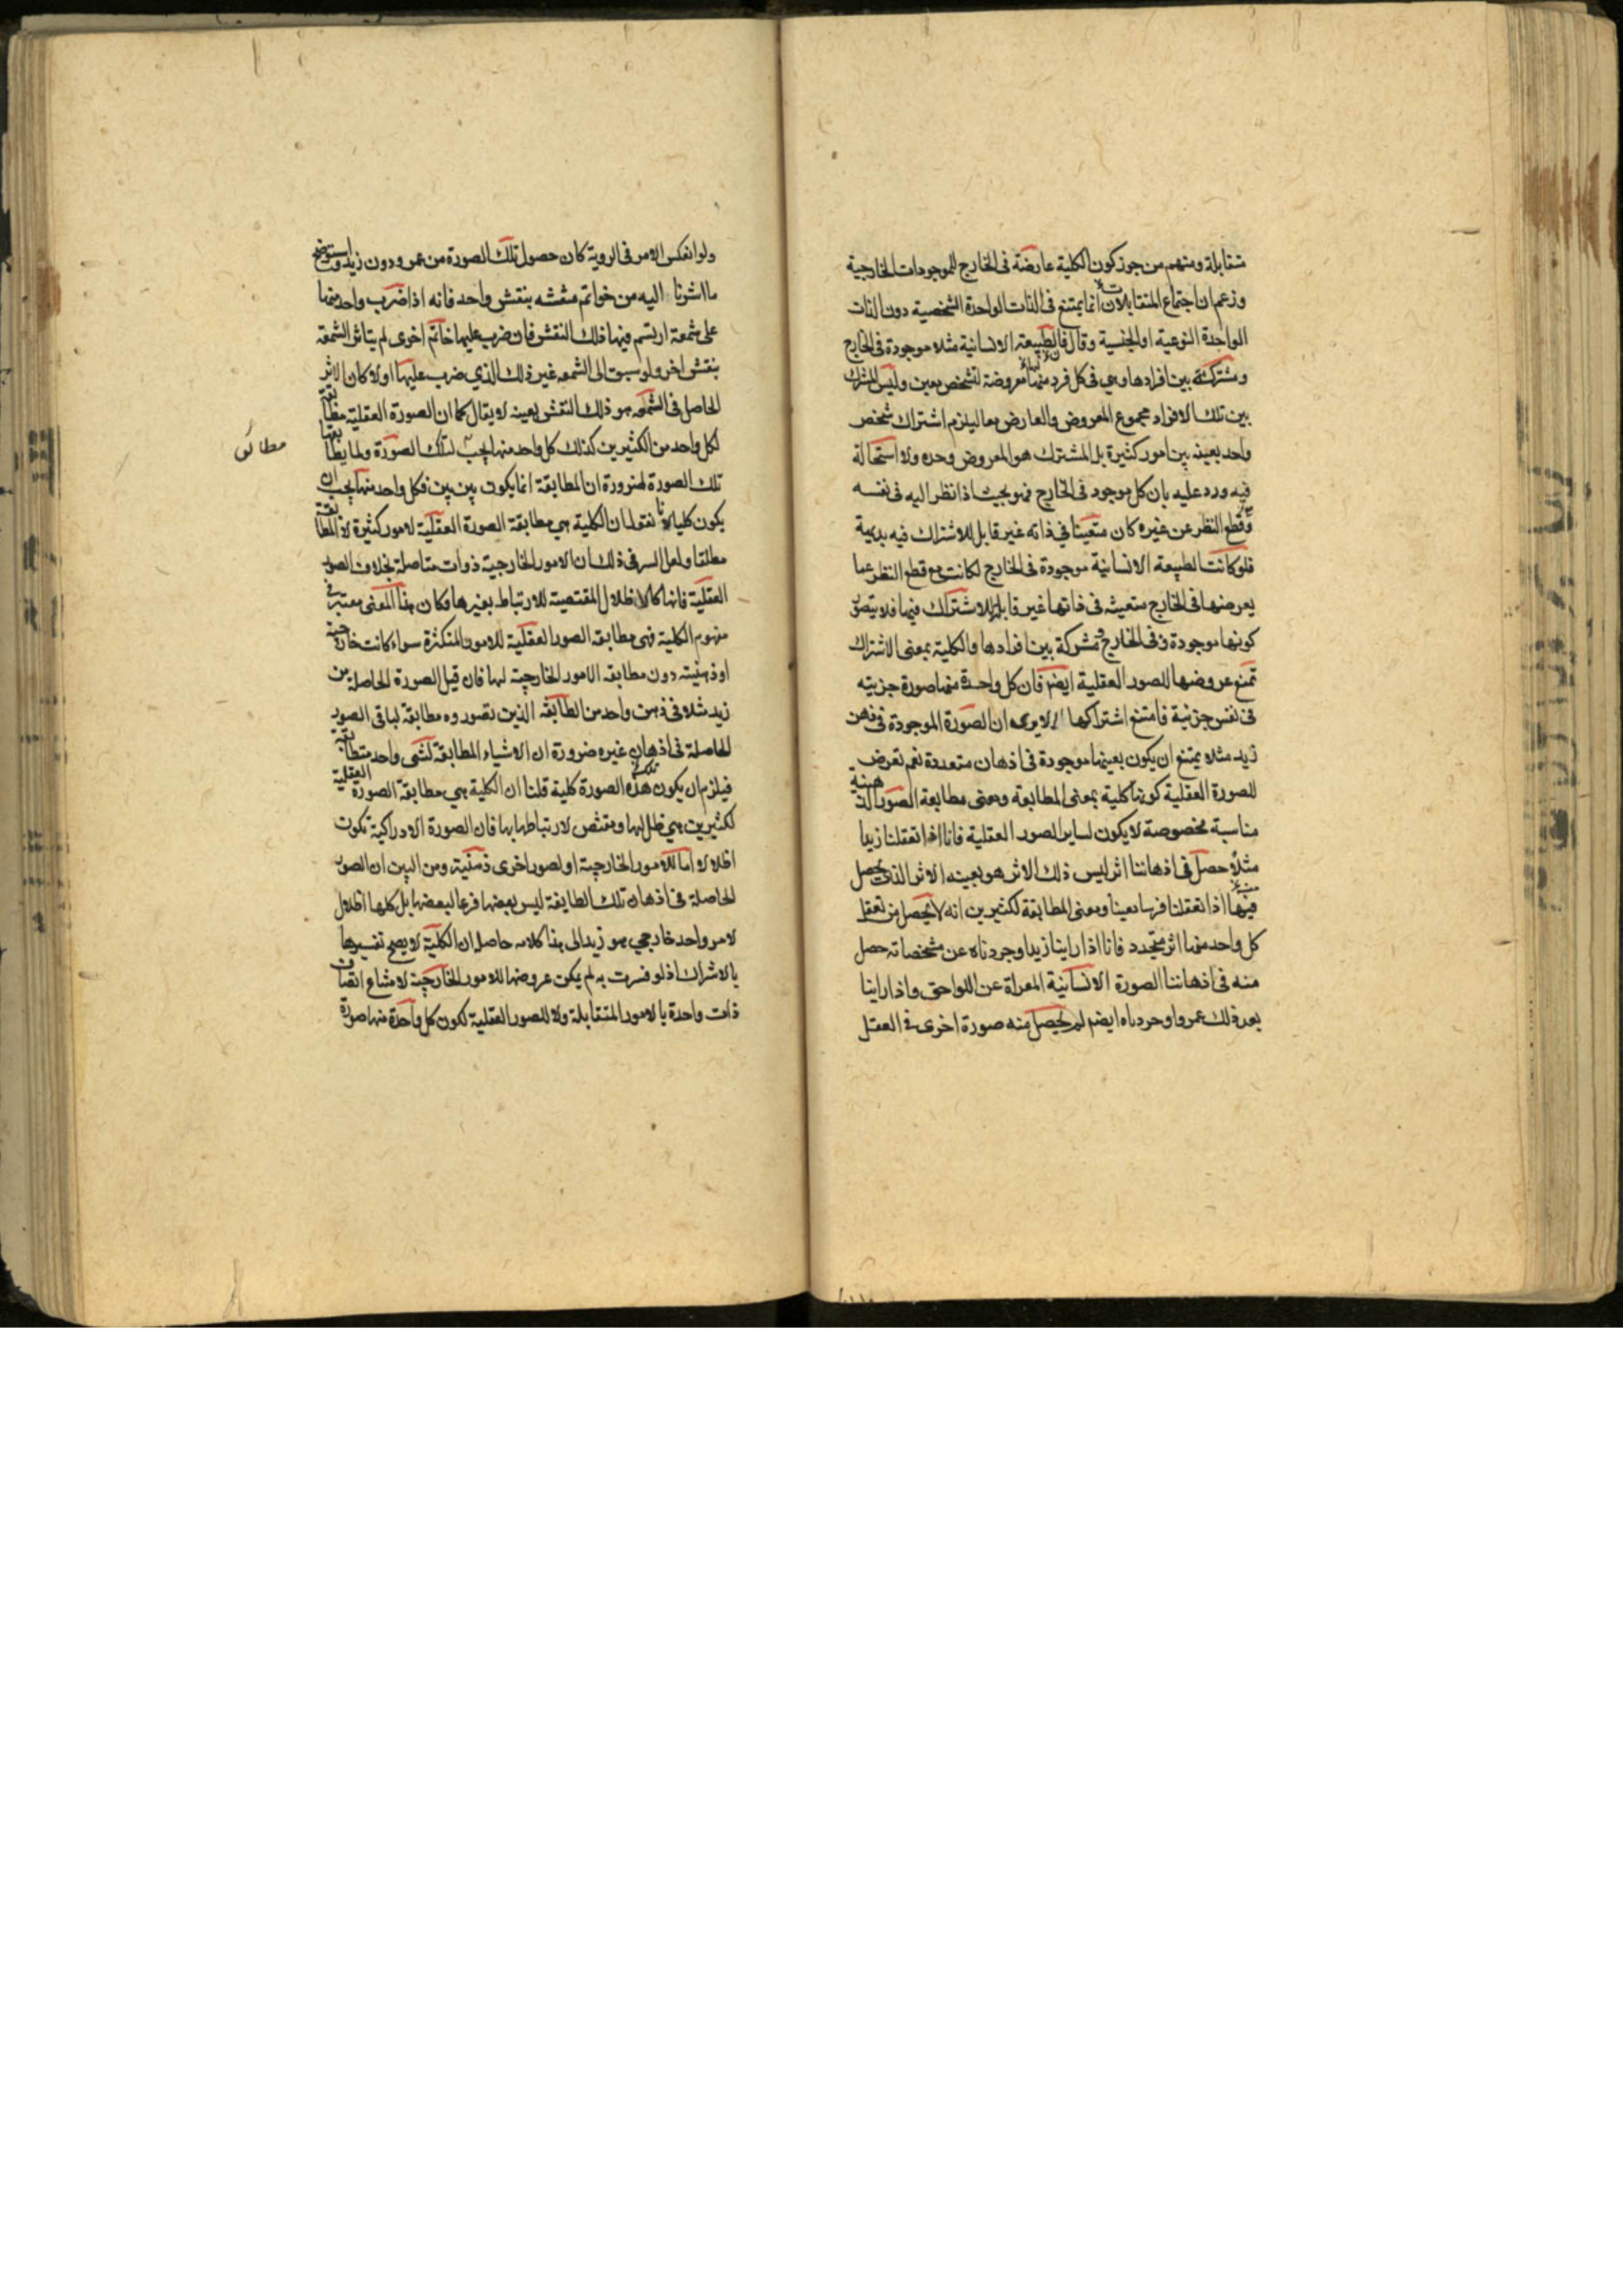 متقابلة ومنهم من جوز كون الكلية عارضة فى الخارج للموجودات الخارجية
وزعم ان اجتماع المتقابلات انما يمتنع فى الذات الواحدة الشخصية دون الذات
الواحدة النوعية او الجنسية وقال فالطبيعة الانسانية مثلا موجودة فى الخارج
ومشتركة بين افرادها وهى فى كل فرد منها معروضة لتشخص معين وليس المشترك
بين تلك الافراد مجموع المعروض والعارض معا ليلزم اشتراك شخص
واحد بعينه بين امور كثيرة بل المشترك هو المعروض وحده ولا استحالة
فيه ورد عليه بان كل موجود فى الخارج فهو بحيث اذا نظر اليه فى نفسه
وقطع النظر عن غيره كان متعينا في ذاته غير قابل للاشتراك فيه بديهية
فلو كانت الطبيعة الانسانية موجودة فى الخارج لكانت مع قطع النظر عما
يعرضها فى الخارج متعينة فى ذاتها غير قابلة للاشتراك فيها فلا يتصور
كونها موجودة فى الخارج ومشتركة بين افرادها والكلية بمعنى الاشتراك
تمتنع عروضها للصور العقلية ايضم فان كل واحدة منها صورة جزئيه
فى نفس جزئية فامتنع اشتراكها الا يرى ان الصورة الموجودة فى ذهن
زيد مثلا يمتنع ان يكون بعينها موجودة فى اذهان متعددة نعم تعرض
للصورة العقلية كونها كلية بمعنى المطابقة ومعنى مطابقة الصور الذهنيه
مناسبة مخصوصة لا يكون لساير الصور العقلية فانا اذا تعقلنا زيدا
مثلا حصل فى اذهاننا اثر ليس ذلك الاثر هو بعينه الاثر الذى يحصل
فيها اذا تعقلنا فرسا معينا ومعنى المطابقة لكثيرين انه لا يحصل من تعقل
كل واحد منها اثر متجدد فانا اذا راينا زيدا وجردناه عن مشخصاته حصل
منه فى اذهاننا الصورة الانسانية المعراة عن اللواحق واذا راينا
بعد ذلك عمروا وجردناه ايضم لم يحصل منه صورة اخرى فى العقل
ولو انعكس الامر فى الروية كان حصول تلك الصورة من عمرو دون زيد واستوضح
ما اشرنا اليه من خواتم منقشه بنقش واحد فانه اذا ضرب واحد منها
على شمعة ارتسم فيها ذلك النقش فان ضرب عليها خاتم اخرى لم يتاثر الشمعة
بنقش اخر ولو سبق الى الشمعه غير ذلك الذي ضرب عليها اولا كان الاثر
الحاصل فى الشمعه هو ذلك النقش بعينه لا يقال كما ان الصورة العقلية مطابقة
لكل واحد من الكثيرين كذلك كل واحد منها يجب لتلك الصورة ولما يطابقها
مطابق
تلك الصورة لضرورة ان المطابقة انما يكون بين بين فكل واحد منها يجب ان
يكون كليا لانا نقول ان الكلية هي مطابقة الصورة العقلية لامور كثيرة لا المطابقة
مطلقا ولعل السر فى ذلك ان الامور الخارجية ذوات متاصلة بخلاف الصور
العقلية فانها كالاظلال المقتضية للارتباط بغيرها وكان هذا المعنى معتبر فى
مفهوم الكلية فهى مطابقة الصور العقلية للامور المتكثرة سواء كانت خارجية
او ذهنية دون مطابقة الامور الخارجية لها فان قيل الصورة الحاصلة من
زيد مثلا فى ذهن واحد من الطائفه الذين تصوروه مطابقة لباقى الصور
الحاصلة فى اذهان غيره ضرورة ان الاشياء المطابقة لشى واحد متطابقة
فيلزم ان يكون تلك الصورة كلية قلنا ان الكلية هي مطابقة الصورة العقلية
لكثيرين هي ظل لها ومقتض لارتباطها بها فان الصورة الادراكية تكون
اظلالا اما للامور الخارجية او لصور اخرى ذهنية ومن البين ان الصور
الحاصلة فى اذهان تلك الطايفة ليس بعضها فرعا لبعضها بل كلها اظلال
لامر واحد خارجي هو زيد الى هنا كلامه حاصله ان الكلية لا يصح تفسيرها
بالاشراك اذ لو فسرت به لم يكن عروضها للامور الخارجية لامتناع اتصاف
ذات واحدة بالامور المتقابلة ولا للصور العقلية لكون كل واحدة منها صورة